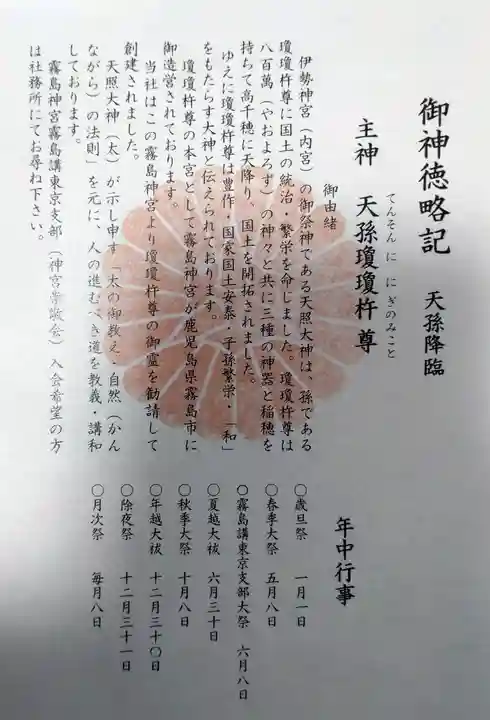 御神徳略記　天孫降臨
てんそん に に ぎのみこと
主神　天孫瓊瓊杵尊
御由緒
伊勢神宮（内宮）の御祭神である天照大神は、孫である
瓊瓊杵尊に国土の統治・繁栄を命じました。瓊瓊杵尊は
八百萬（やおよろず）の神々と共に三種の神器と稲穂を
持ちて高千穂に天降り、国土を開拓されました。
ゆえに瓊瓊杵尊は豊作・国家国土安泰・子孫繁栄・「和」
をもたらす大神と伝えられております。
瓊瓊杵尊の本宮として霧島神宮が鹿児島県霧島市に
御造営されております。
当社はこの霧島神宮より瓊瓊杵尊の御霊を勧請して
創建されました。
天照大神（太）が示し申す「太の御教え・自然（かん
ながら）の法則」を元に、人の進むべき道を教義・講和
しております。
霧島神宮霧島講東京支部（神宮崇敬会）入会希望の方
は社務所にてお尋ね下さい。
年中行事
〇歳旦祭　一月一日
〇春季大祭　五月八日
〇霧島講東京支部大祭　六月八日
〇夏越大祓　六月三十日
〇秋季大祭　十月八日
〇年越大祓　十二月三十〇日
〇除夜祭　十二月三十一日
〇月次祭　毎月八日